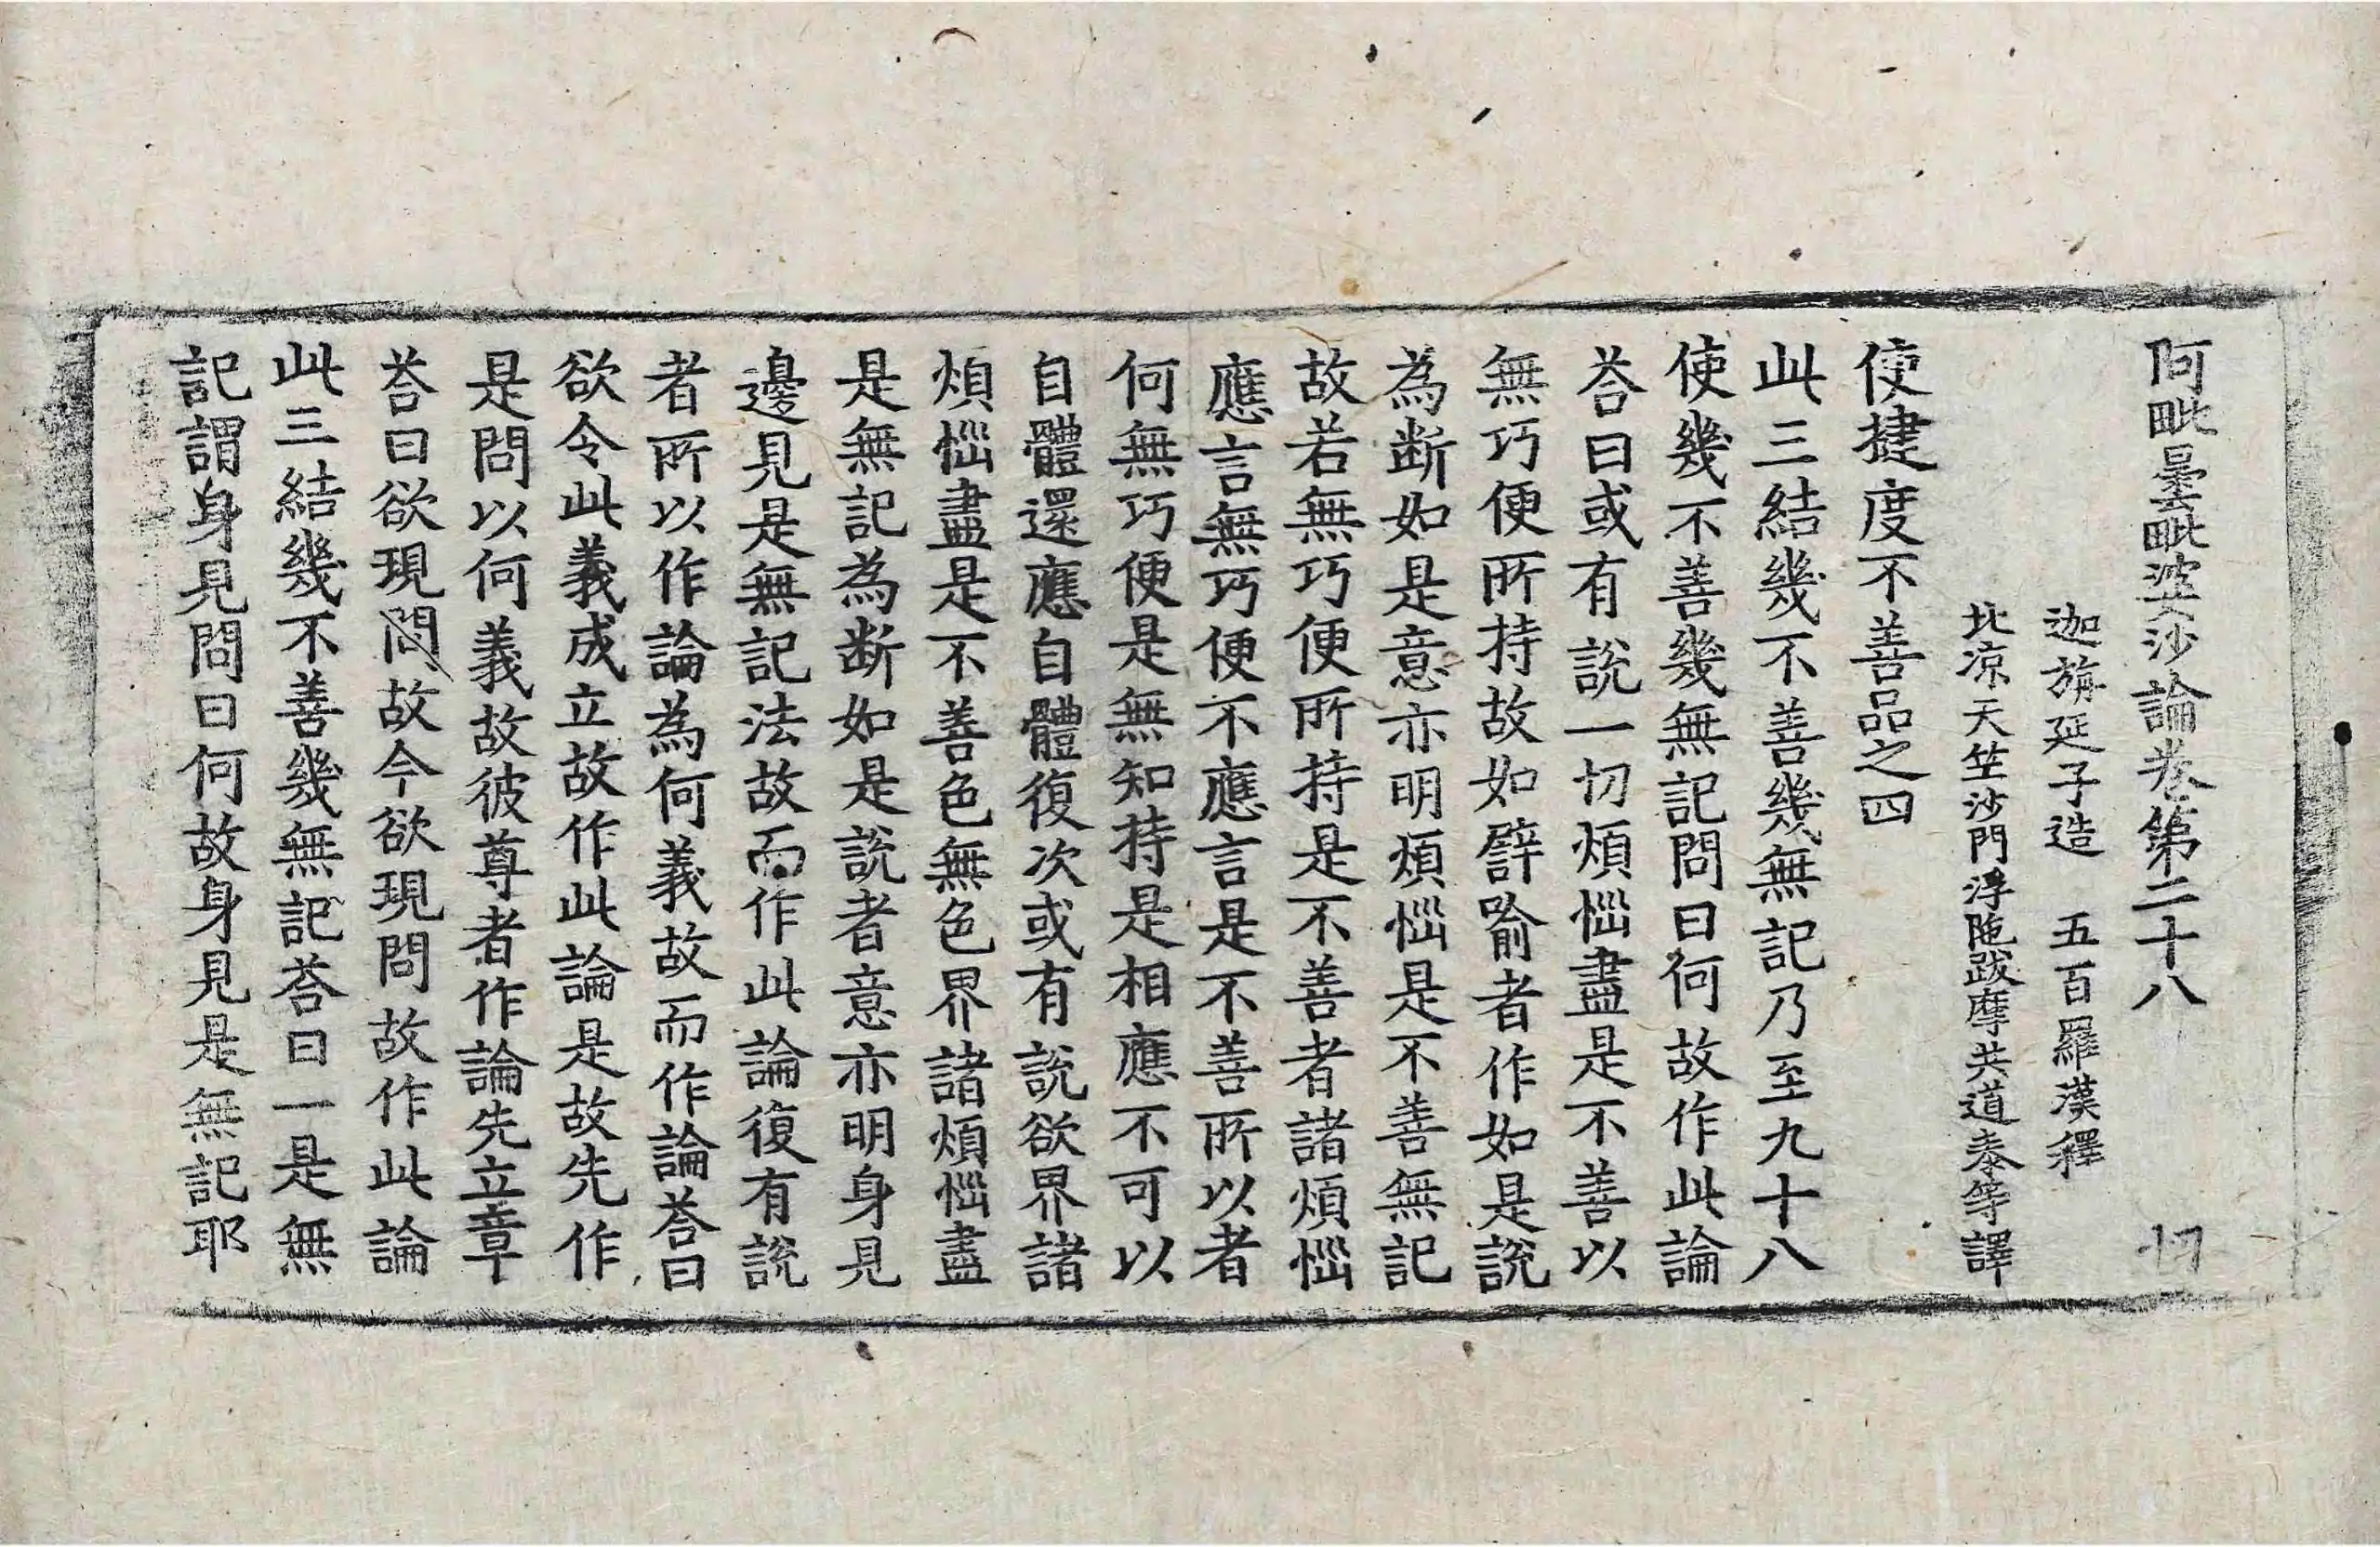 阿毗曇毗婆沙論卷第二十八 切
迦旃延子造 五百羅漢釋
北涼天竺沙門浮陁跋摩共道泰等譯
使揵度不善品之四
此三結幾不善幾無記乃至九十八
使幾不善幾無記問曰何故作此論
荅曰或有說一切煩惱盡是不善以
無巧便所持故如譬喻者作如是說
為断如是意亦明煩惱是不善無記
故若無巧便所持是不善者諸煩惱
應言無巧便不應言是不善所以者
何無巧便是無知持是相應不可以
自體還應自體復次或有說欲界諸
煩惱盡是不善色無色界諸煩惱盡
是無記為断如是說者意亦明身見
邊見是無記法故而作此論復有說
者所以作論為何義故而作論荅曰
欲令此義成立故作此論是故先作
是問以何義故彼尊者作論先立章
荅曰欲現問故今欲現問故作此論
此三結幾不善幾無記荅曰一是無
記謂身見問曰何故身見是無記耶